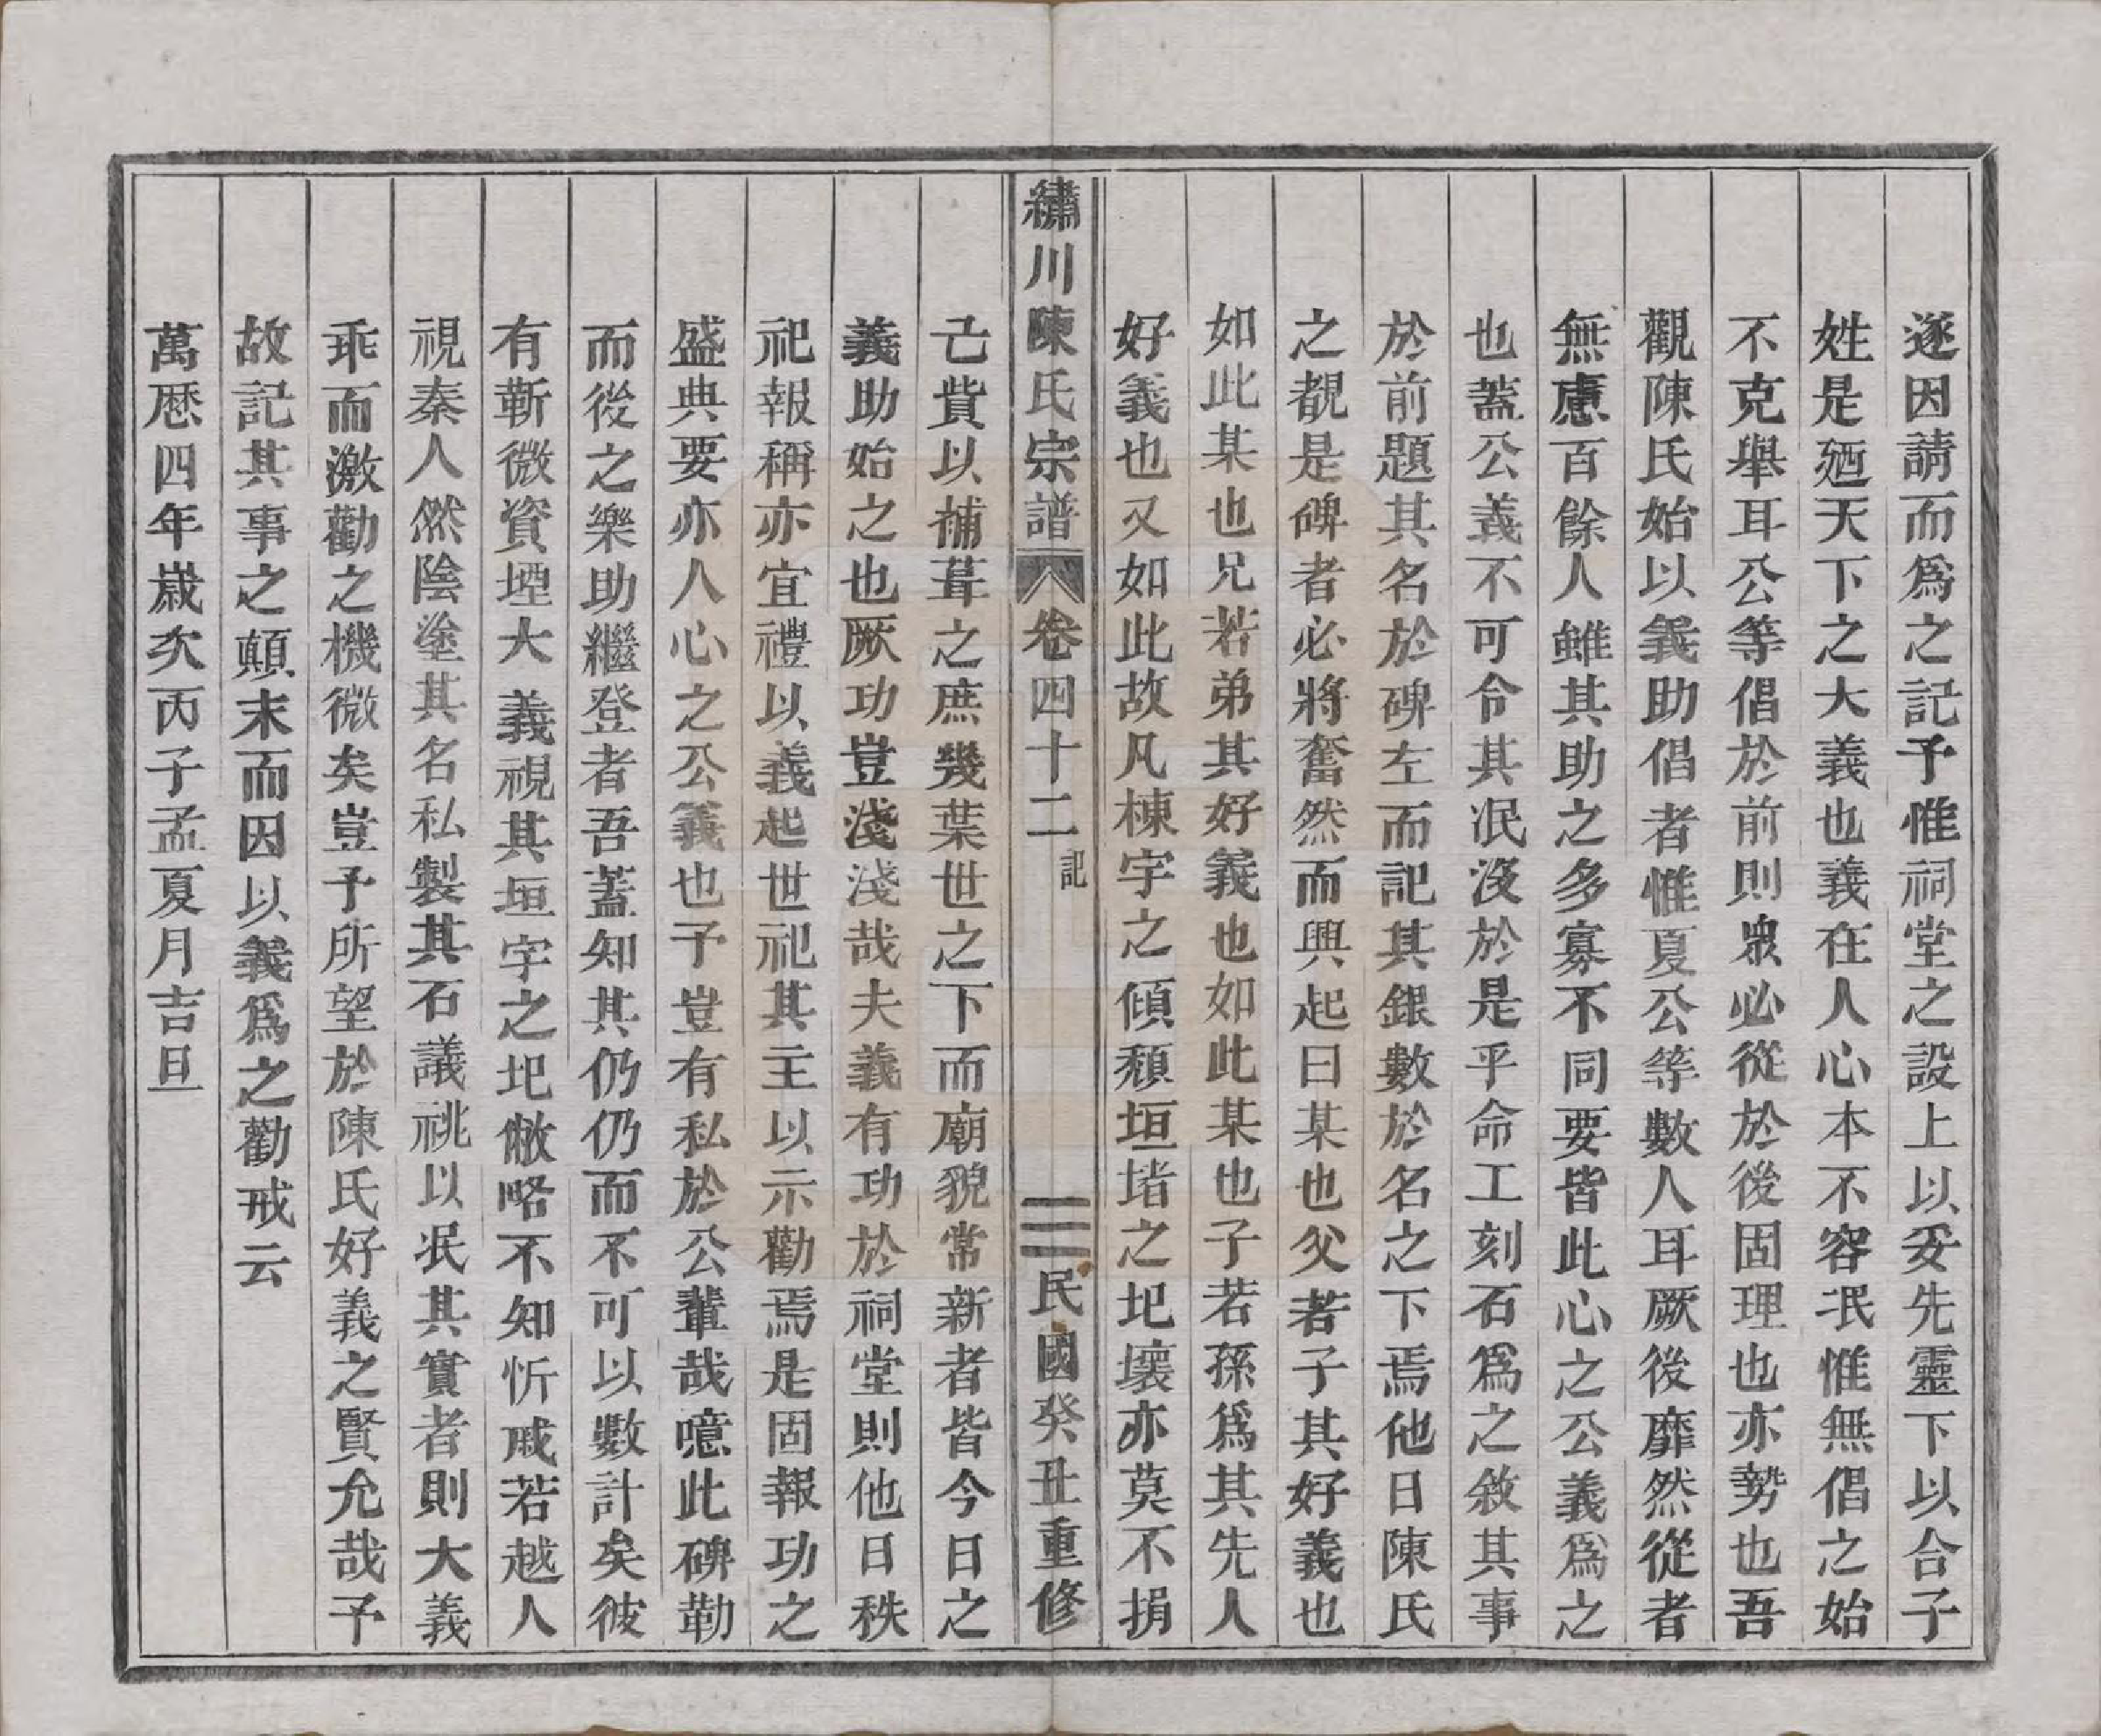 遂因請而爲之記予惟祠堂之設上以妥先靈下以合子
姓是廼天下之大義也義在人心本不容泯惟無倡之始
不克舉耳公等倡於前則眾必從於後固理也亦勢也吾
觀陳氏始以義助倡者惟夏公等數人耳厥後靡然從者
無慮百餘人雖其助之多寡不同要皆此心之公義爲之
也蓋公義不可令其泯沒於是乎命工刻石爲之敘其事
於前題其名於碑左而記其銀數於名之下焉他日陳氏
之覩是碑者必將奮然而興起曰某也父若子其好義也
如此某也兄若弟其好義也如此某也子若孫爲其先人
好義也又如此故凡棟宇之傾頽垣堵之圯壞亦莫不捐
繡川陳氏宗譜
卷四十二
記
三
民國癸丑重修
己貲以補葺之庶幾葉世之下而廟貌常新者皆今日之
義助始之也厥功豈淺淺哉夫義有功於祠堂則他日秩
祀報稱亦宜禮以義起世祀其主以示勸焉是固報功之
盛典要亦人心之公義也予豈有私於公輩哉噫此碑勒
而後之樂助繼登者吾蓋知其仍仍而不可以數計矣彼
有蘄微資堙大義視其垣宇之圯敝略不知忻戚若越人
視秦人然陰塗其名私製其石議祧以泯其實者則大義
乖而激勸之機微矣豈予所望於陳氏好義之賢允哉予
故記其事之顛末而因以義爲之勸戒云
萬歷四年歲次丙子孟夏月吉旦